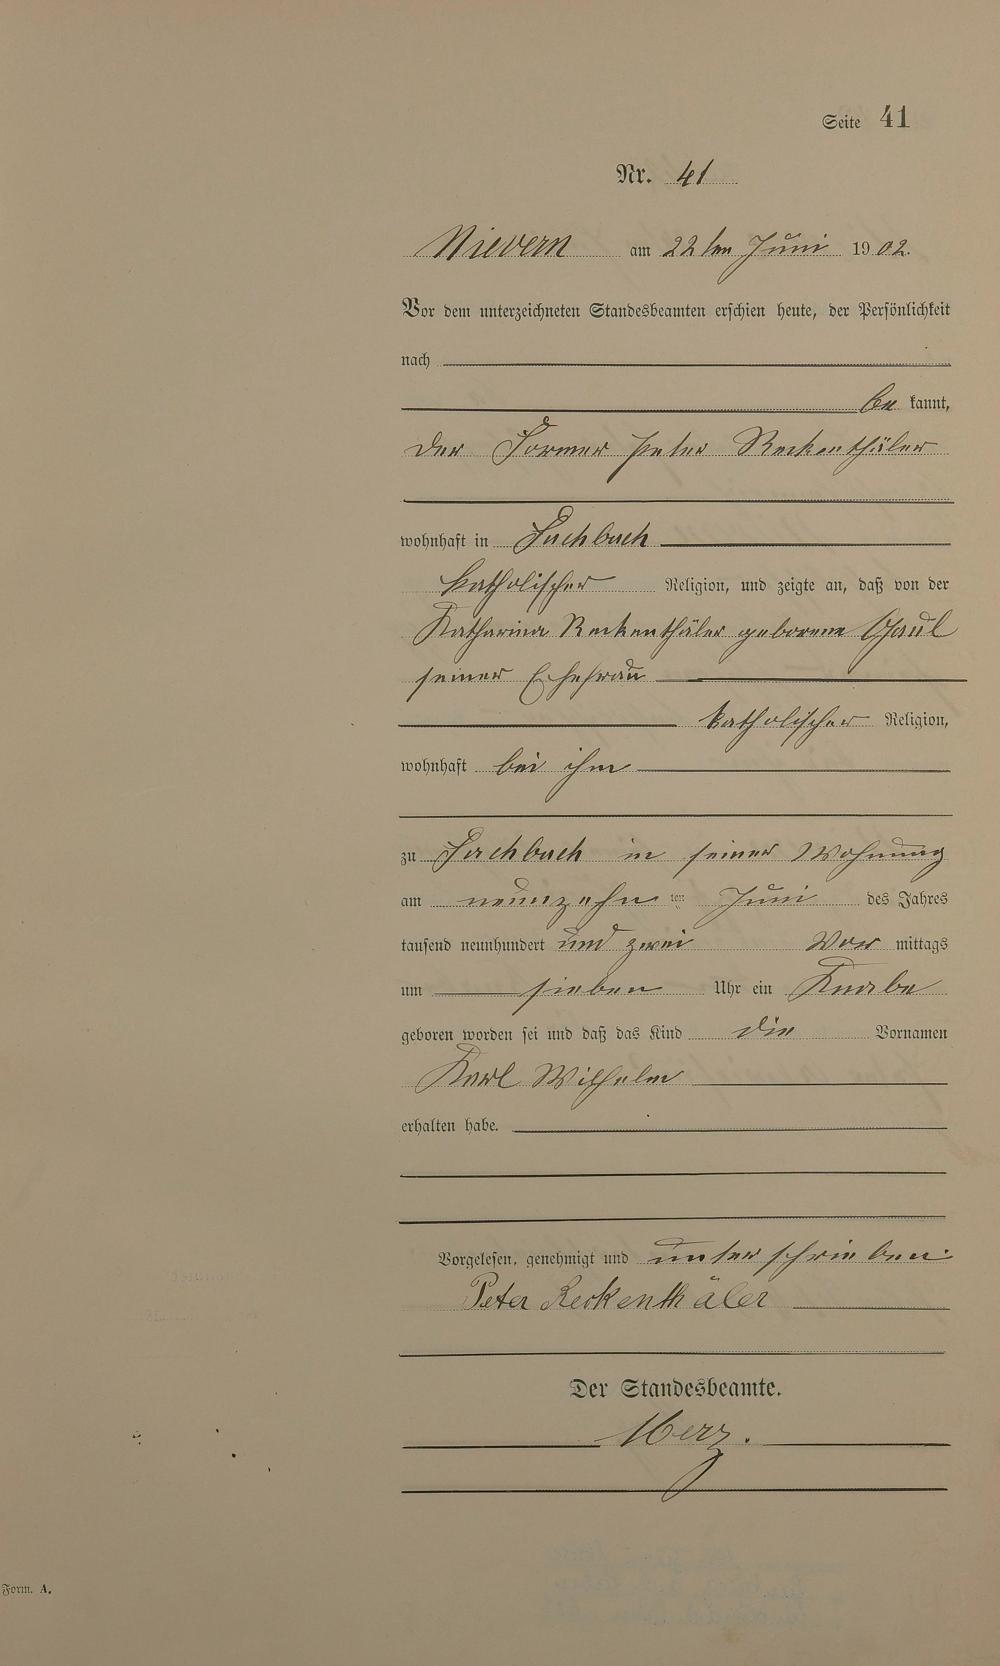 Seite 41
Nr. 41
Nievern am 22ten Juni 1902.
Vor dem unterzeichneten Standesbeamten erschien heute, der Persönlichkeit
nach
be kannt,
der Former Peter Reckenthäler
wohnhaft in Fachbach
katholischer Religion, und zeigte an, daß von der
Katharina Reckenthäler geborene Gaul
seiner Ehefrau
katholischer Religion,
wohnhaft bei ihm
zu Fachbach in seiner Wohnung
am neunzehn ten Juni des Jahres
tausend neunhundert und zwei Vor mittags
um sieben Uhr ein Knabe
geboren worden sei und daß das Kind die Vornamen
Karl Wilhelm
erhalten habe.
Vorgelesen, genehmigt und unterschrieben
Peter Reckenthäler
Der Standesbeamte.
Merz.
Form. A.